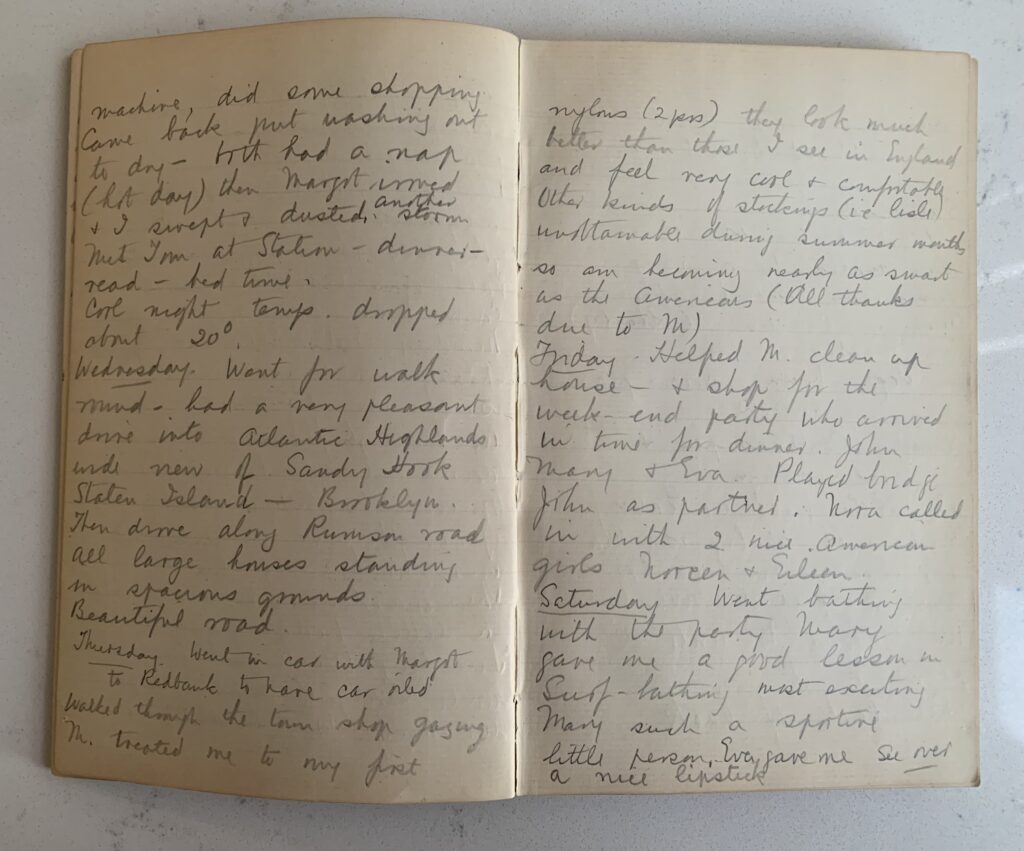 machine, did some shopping
Came back put washing out
to dry – both had a nap
(hot day) then Margot ironed
& I swept & dusted. another storm
Met Tom at Station – dinner –
read – bed time.
Cool night temp. dropped
about 20°.
Wednesday. Went for walk
mind – had a very pleasant
drive into Atlantic Highlands
wide view of Sandy Hook
Staten Island – Brooklyn.
Then drive along Rumson road
all large houses standing
in spacious grounds.
Beautiful road.
Thursday. Went in car with Margot
to Redbank to have car oiled
Walked through the town shop gazing
M. treated me to my first
nylons (2 prs) they look much
better than those I see in England
and feel very cool & comfortable
Other kinds of stockings (ie lisle)
unobtainable during summer months
so am becoming nearly as smart
as the Americans (All thanks
due to M)
Friday. Helped M. clean up
house – & shop for the
week-end party who arrived
in time for dinner. John
Mary & Eva. Played bridge
John as partner. Nora called
in with 2 nice American
girls Noreen & Eileen.
Saturday Went bathing
with the party Mary
gave me a good lesson in
Surf-bathing most exciting
Mary such a sporting
little person, Eva gave me see over
a nice lipstick